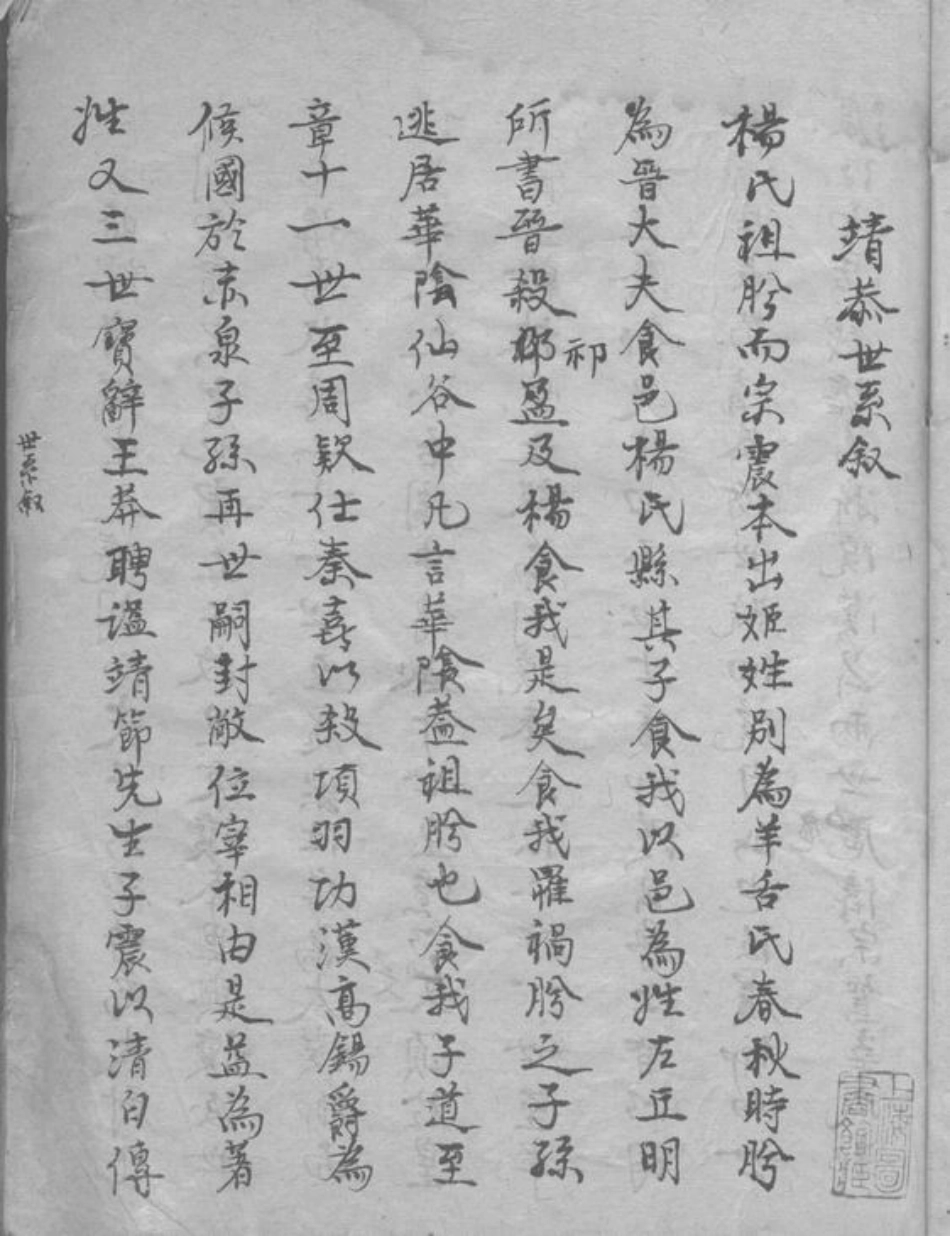 靖恭世系叙
楊氏祖肸而宗震本出姬姓別為羊舌氏春秋時肸
為晉大夫食邑楊氏縣其子食我以邑為姓左丘明
所書晉殺祁盈及楊食我是矣食我罹禍肸之子孫
祁
逃居華陰仙谷中凡言華陰蓋祖肸也食我子道至
章十一世至周欵仕秦喜以殺項羽功漢高錫爵為
侯國於赤泉子孫再世嗣封敞位宰相由是益為著
姓又三世寶辭王莽聘謚靖節先生子震以清白傳
世系叙